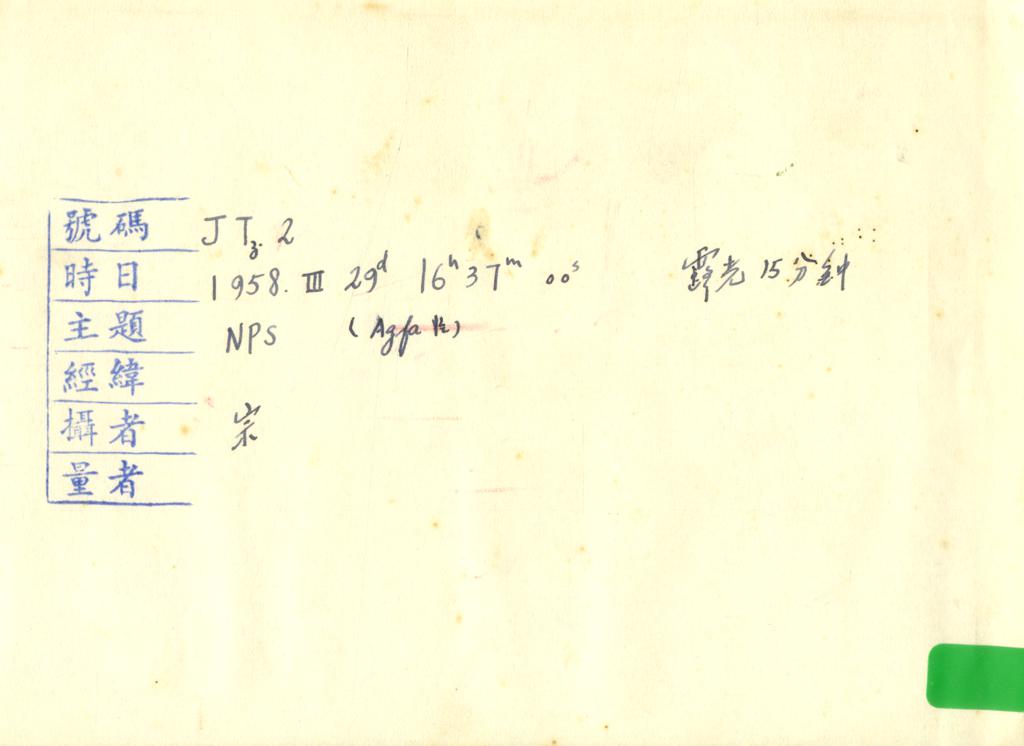 號碼 JT₃. 2
時日 1958. III 29ᵈ 16ʰ 37ᵐ 00ˢ 露光 15 分鈡
主題 NPS (Agfa 
經緯
攝者 宗
量者